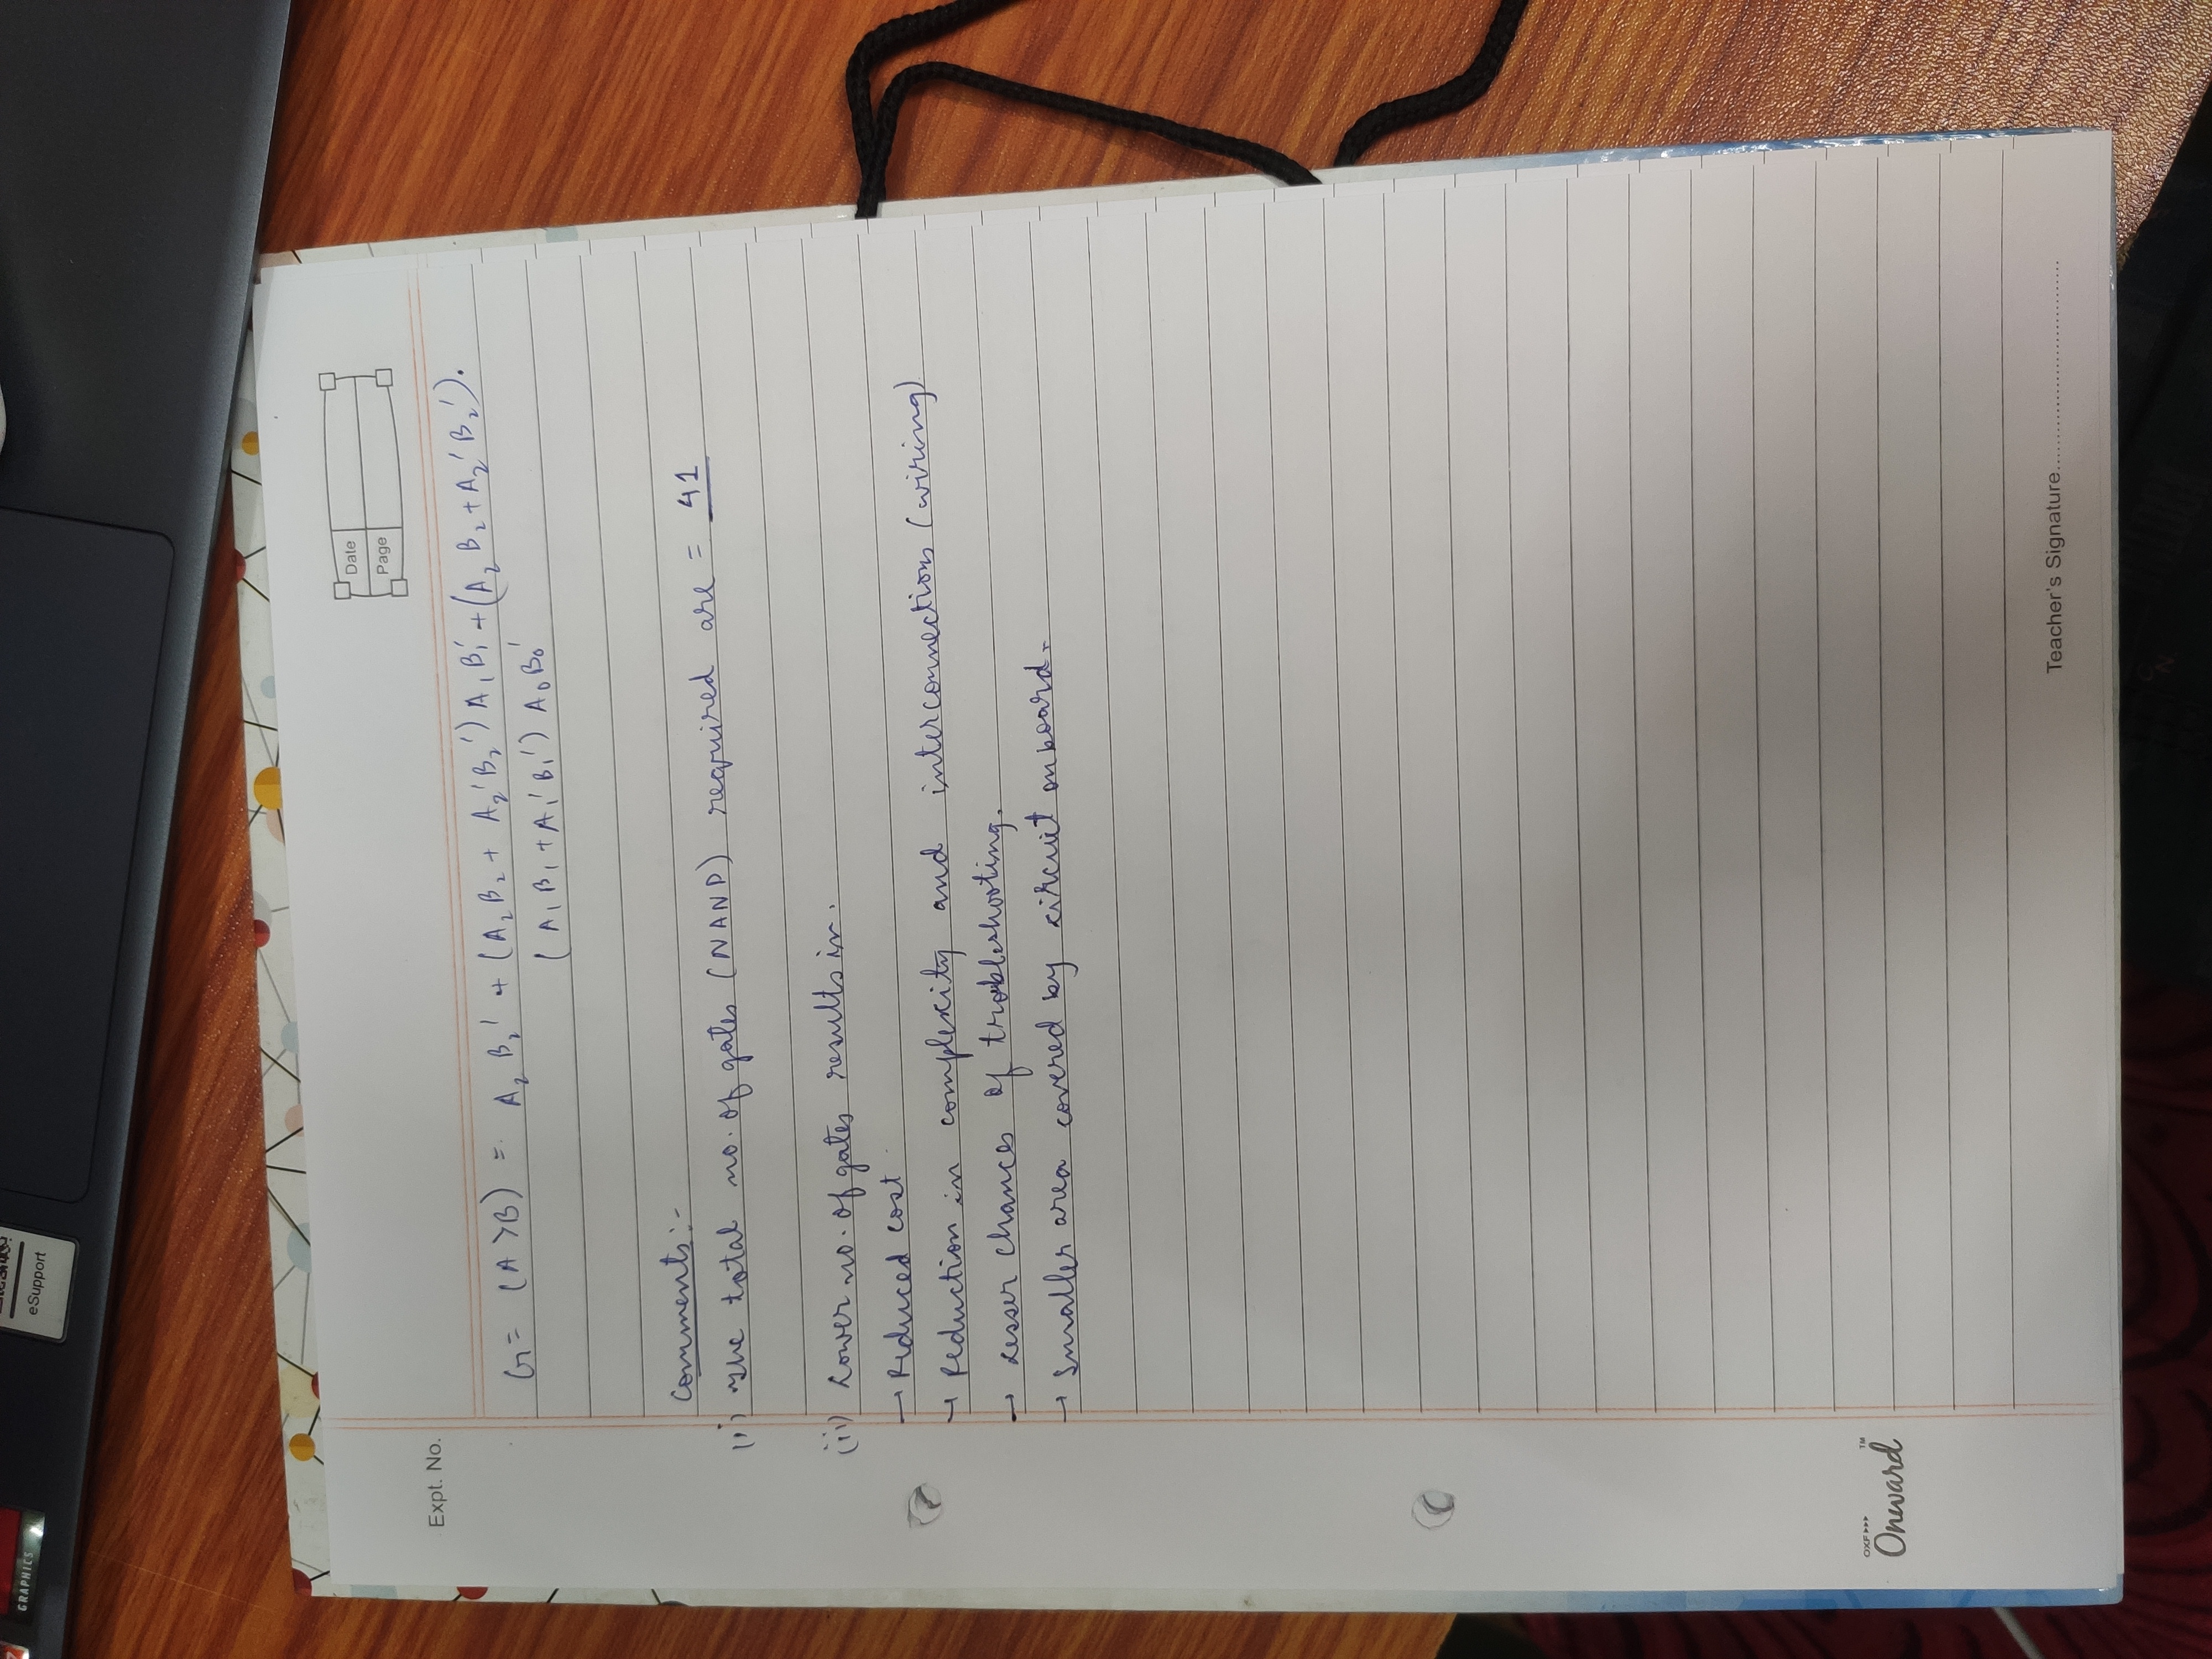 GRAPHICS
eSupport
Date
Page
Expt. No.
G = (A > B) = A₂ B₂' + (A₂ B₂ + A₂' B₂') A₁ B₁' + (A₂ B₂ + A₂' B₂').
(A₁ B₁ + A₁' B₁') A₀ B₀'
Comments :-
(i) The total no. of gates (NAND) required are = 41
(ii) Lower no. of gates results in.
→ Reduced cost
→ Reduction in complexity and interconnections (wiring)
→ Lesser chances of trobleshooting.
→ Smaller area covered by circuit on board.
OXF▸▸▸ TM
Onward
Teacher's Signature